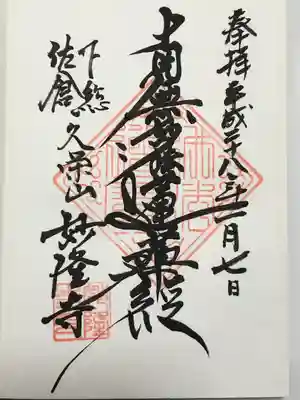 奉拝 平成二十八年十一月七日
南無妙法蓮華経
下総
佐倉 久栄山 妙隆寺